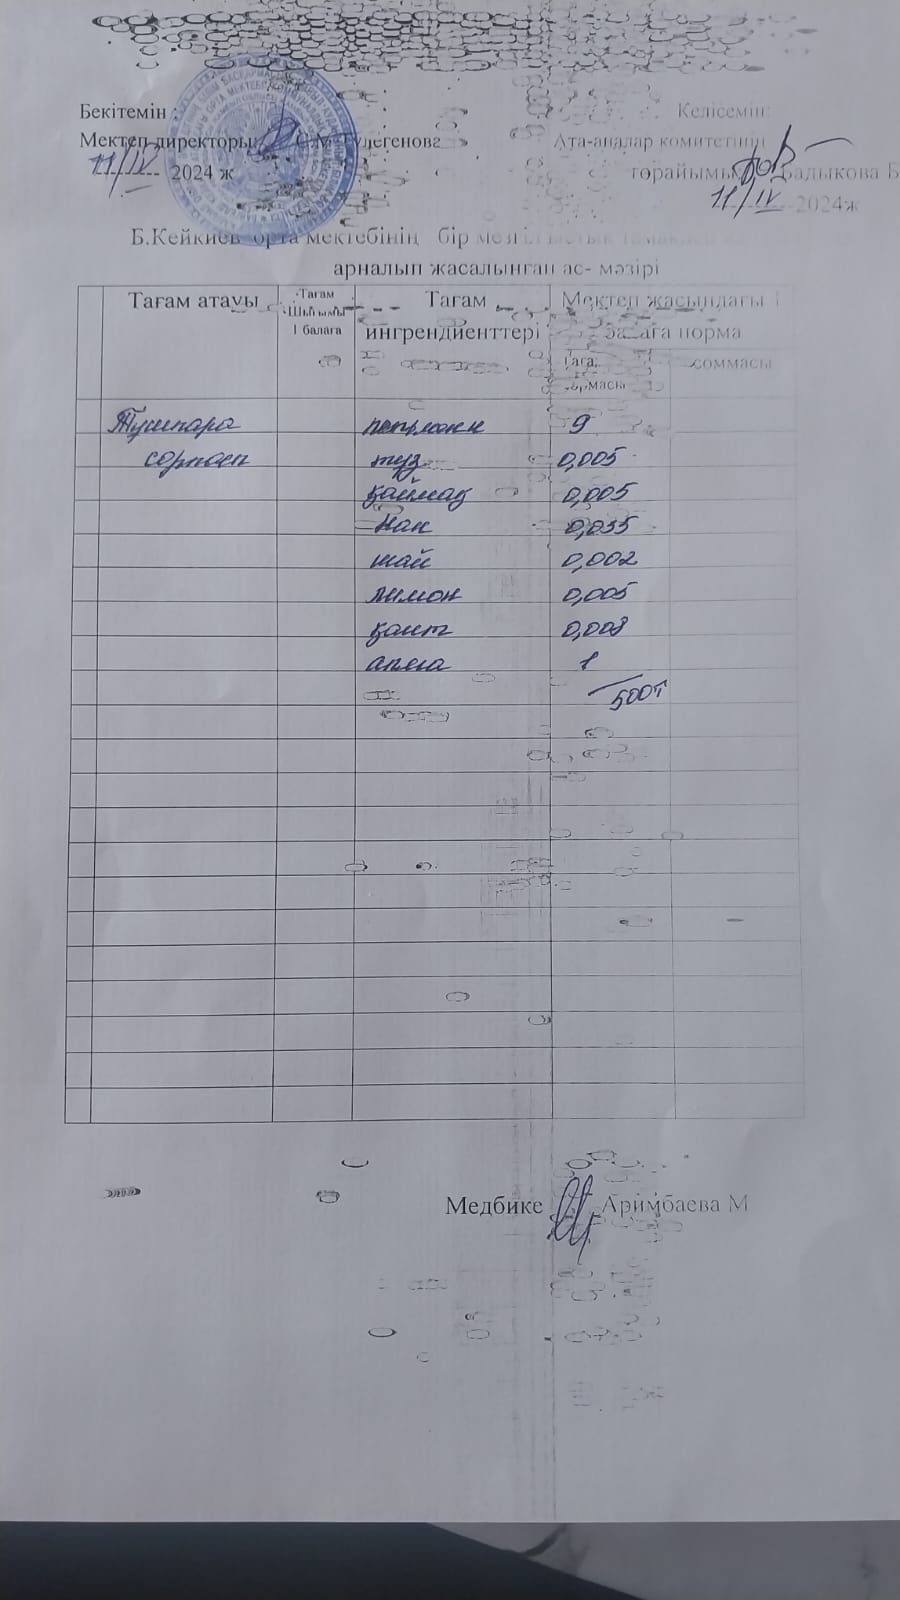 Бекітемін :
Келісемін:
Мектеп директоры С.М.Тулегенова
Ата-аналар комитетінің
11/IV 2024 ж
төрайымы Бадыкова Б
11/IV 2024ж
Б.Кейкиев орта мектебінің бір мезгіл ыстық
арналып жасалынған ас- мәзірі
Тағам атауы
Тағам
Шығымы
1 балаға
Тағам
ингрендиенттері
Мектеп жасындағы 1
балаға норма
нормасы
соммасы
Тушпара пельмени 9
сорпасы тұз 0,005
қаймақ 0,005
нан 0,035
шай 0,002
лимон 0,005
қант 0,008
алма 1
500т
Медбике Аримбаева М